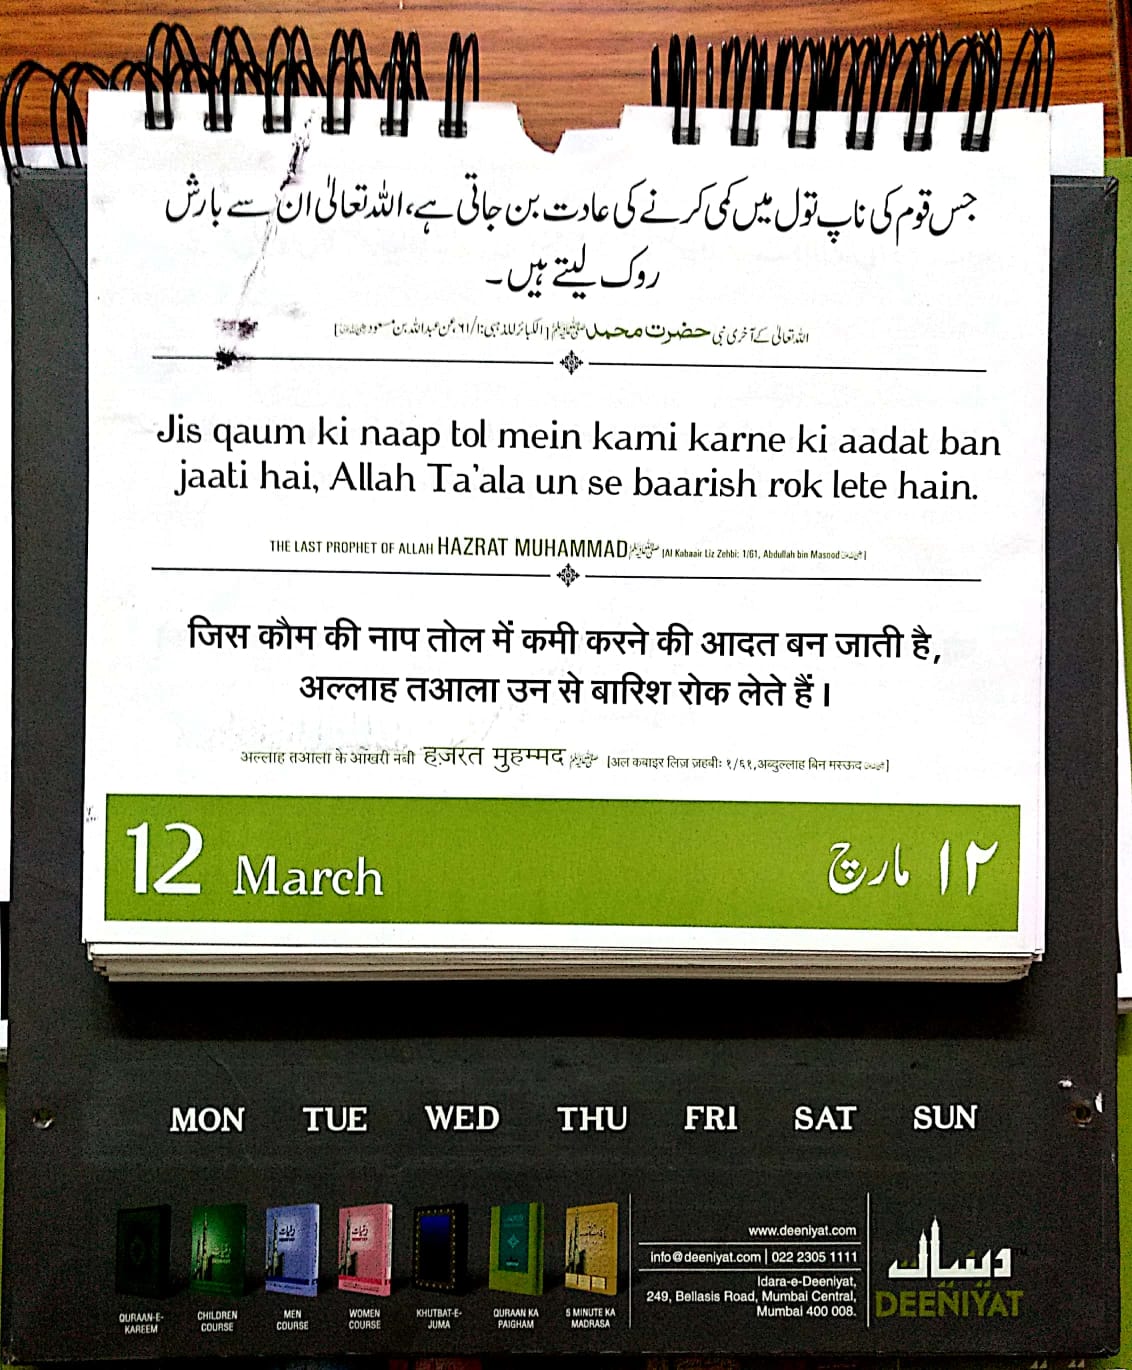 جس قوم کی ناپ تول میں کمی کرنے کی عادت بن جاتی ہے، اللہ تعالیٰ ان سے بارش
روک لیتے ہیں۔
اللہ تعالیٰ کے آخری نبی حضرت محمد ﷺ [الکبائر للذہبی: ۱/۶۱، عن عبداللہ بن مسعود]
Jis qaum ki naap tol mein kami karne ki aadat ban
jaati hai, Allah Ta'ala un se baarish rok lete hain.
THE LAST PROPHET OF ALLAH HAZRAT MUHAMMAD ﷺ [Al Kabaair Liz Zehbi: 1/61, Abdullah bin Masood]
जिस कौम की नाप तोल में कमी करने की आदत बन जाती है,
अल्लाह तआला उन से बारिश रोक लेते हैं।
अल्लाह तआला के आखरी नबी हज़रत मुहम्मद ﷺ [अल कबाइर लिज़ ज़हबी: १/६१, अब्दुल्लाह बिन मस्ऊद]
12 March ۱۲ مارچ
MON TUE WED THU FRI SAT SUN
QURAAN-E-KAREEM
CHILDREN COURSE
MEN COURSE
WOMEN COURSE
KHUTBAT-E-JUMA
QURAAN KA PAIGHAM
5 MINUTE KA MADRASA
www.deeniyat.com
info@deeniyat.com | 022 2305 1111
Idara-e-Deeniyat,
249, Bellasis Road, Mumbai Central,
Mumbai 400 008.
دینیات
DEENIYAT